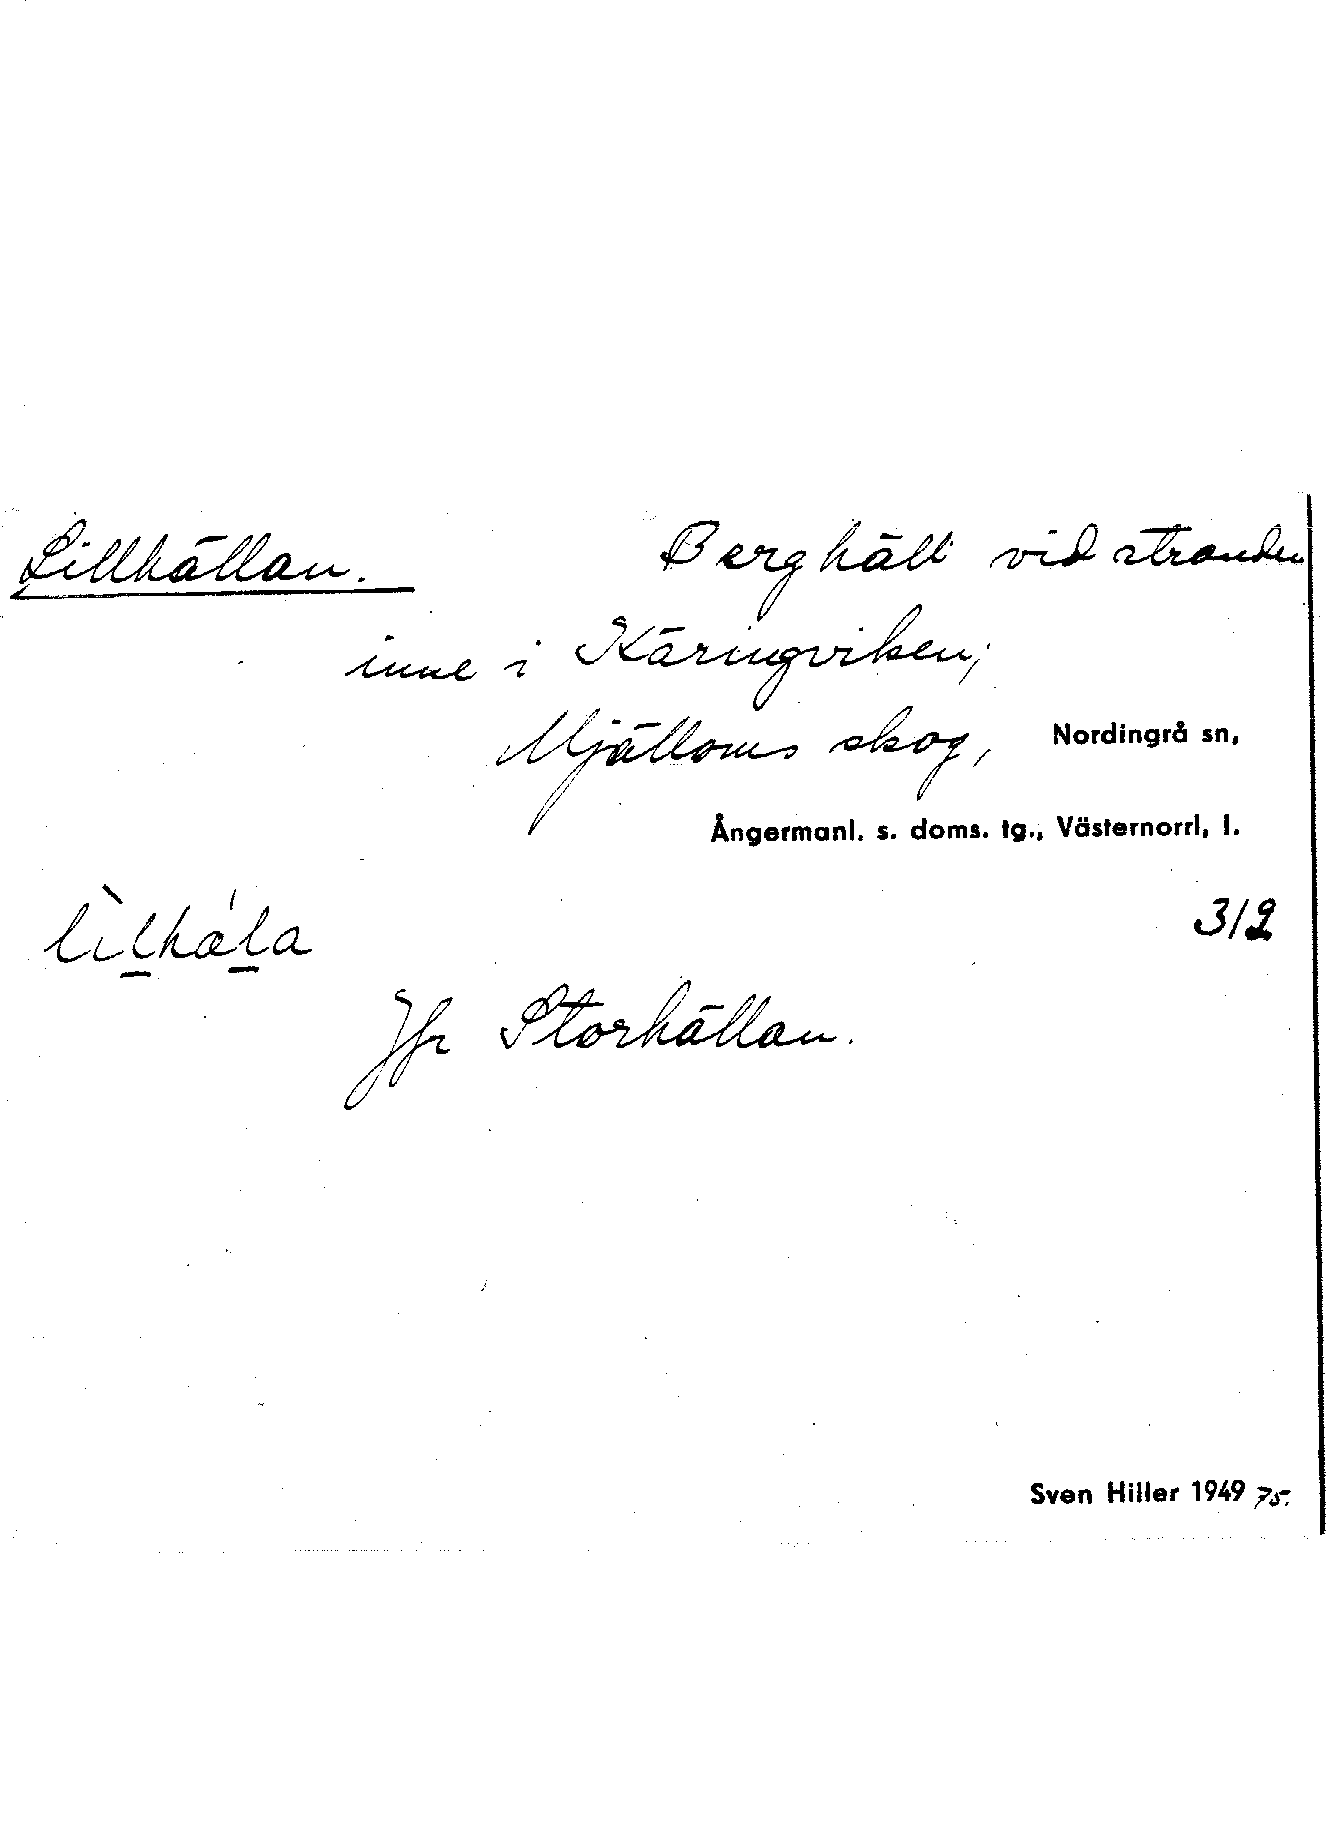 Lillhällan. Berghäll vid stranden
inne i Käringviken;
Mjälloms skog, Nordingrå sn,
Ångermanl. s. doms. tg., Västernorrl, l.
lìlhæ´la 312
Jfr Storhällan.
Sven Hiller 1949 75.